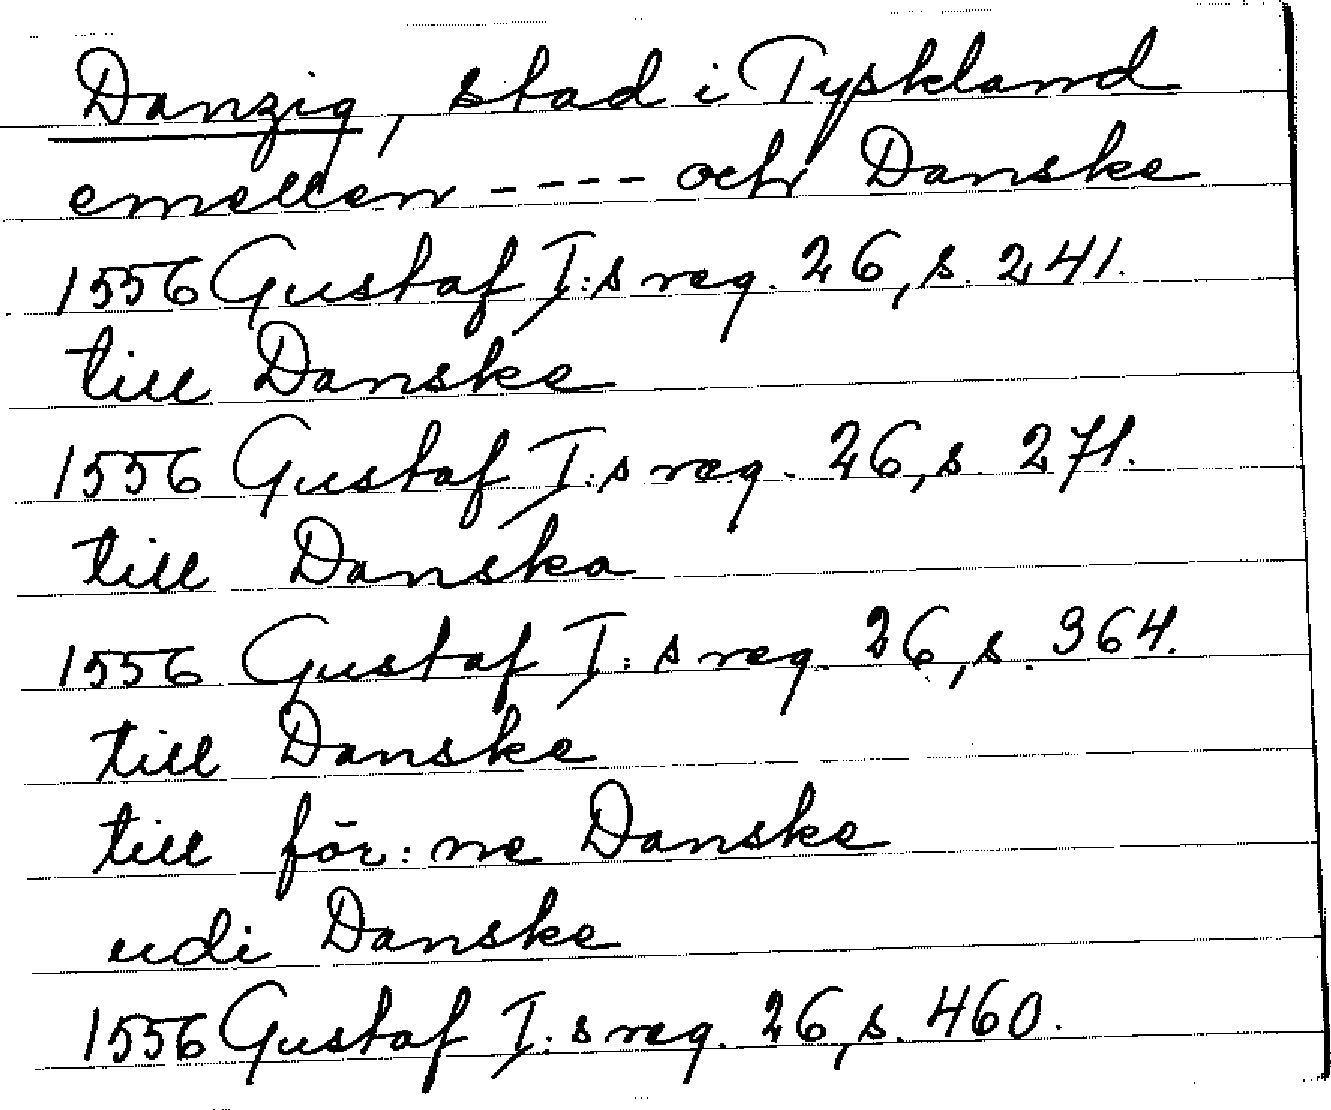 Danzig, stad i Tyskland
emellen ---- och Danske
1556 Gustaf I:s reg. 26, s. 241.
till Danske
1556 Gustaf I:s reg. 26, s. 271.
till Danska
1556 Gustaf I:s reg. 26, s. 364.
till Danske
till för:ne Danske
udi Danske
1556 Gustaf I:s reg. 26, s. 460.